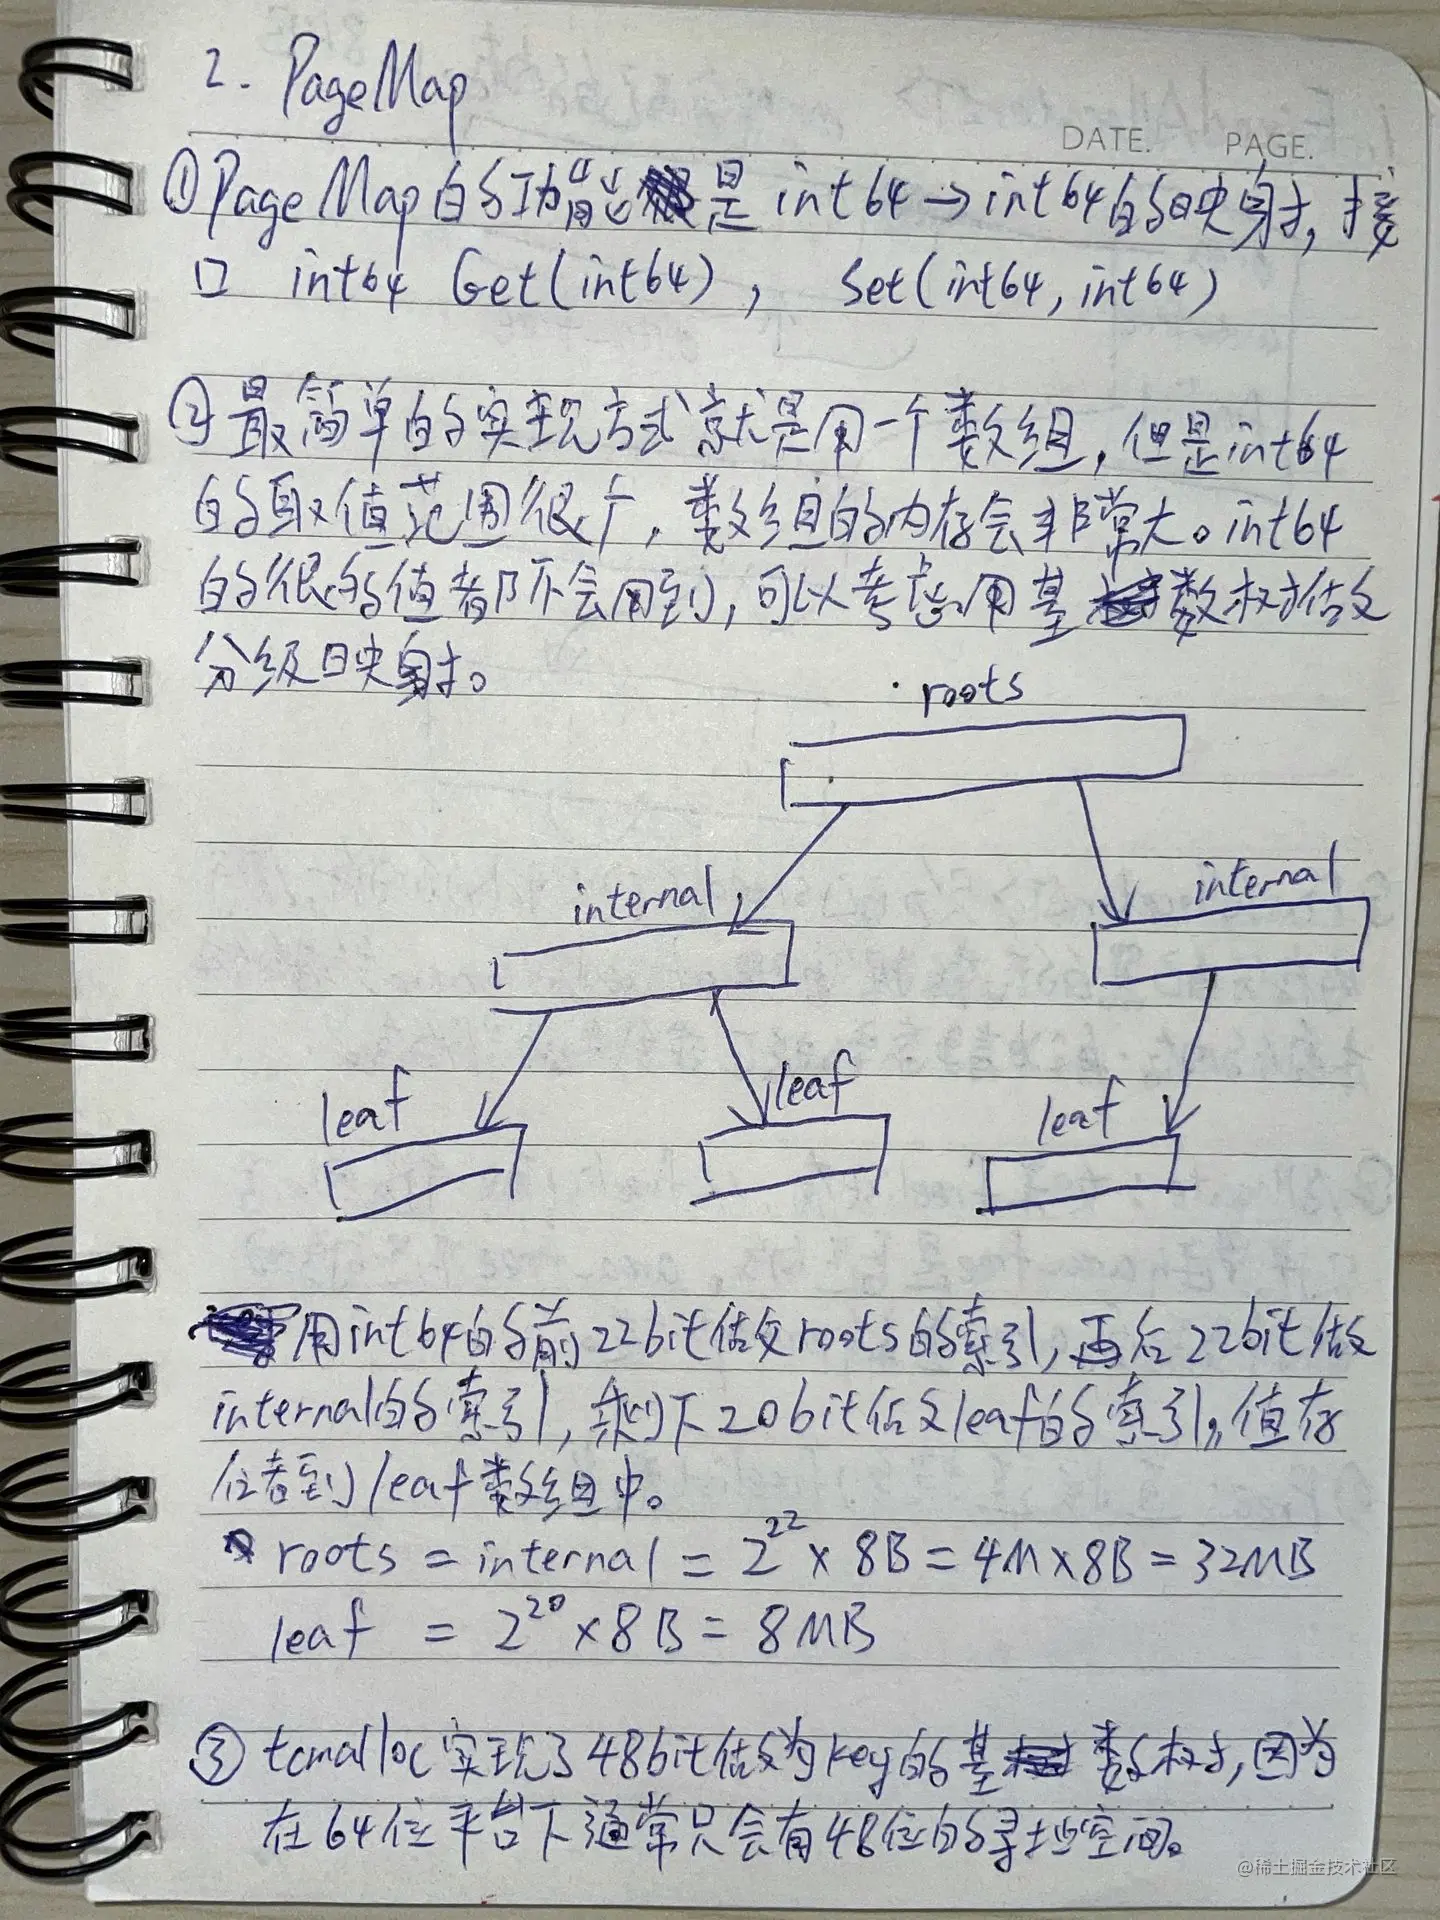 2. PageMap
DATE. PAGE.
①PageMap的功能是 int64→int64的映射,接
口 int64 Get(int64), Set(int64,int64)
②最简单的实现方式就是用一个数组,但是int64
的取值范围很广,数组的内存会非常大。int64
的很的值都不会用到,可以考虑用基数树做
分级映射。
roots
internal internal
leaf leaf leaf
用int64的前22bit做roots的索引,再后22bit做
internal的索引,剩下20bit做leaf的索引。值存
到leaf数组中。
roots = internal = 2²² × 8B = 4M×8B = 32MB
leaf = 2²⁰ ×8B = 8MB
③ tcmalloc实现了48bit做为key的基数树,因为
在64位平台下通常只会有48位的寻址空间。
@稀土掘金技术社区